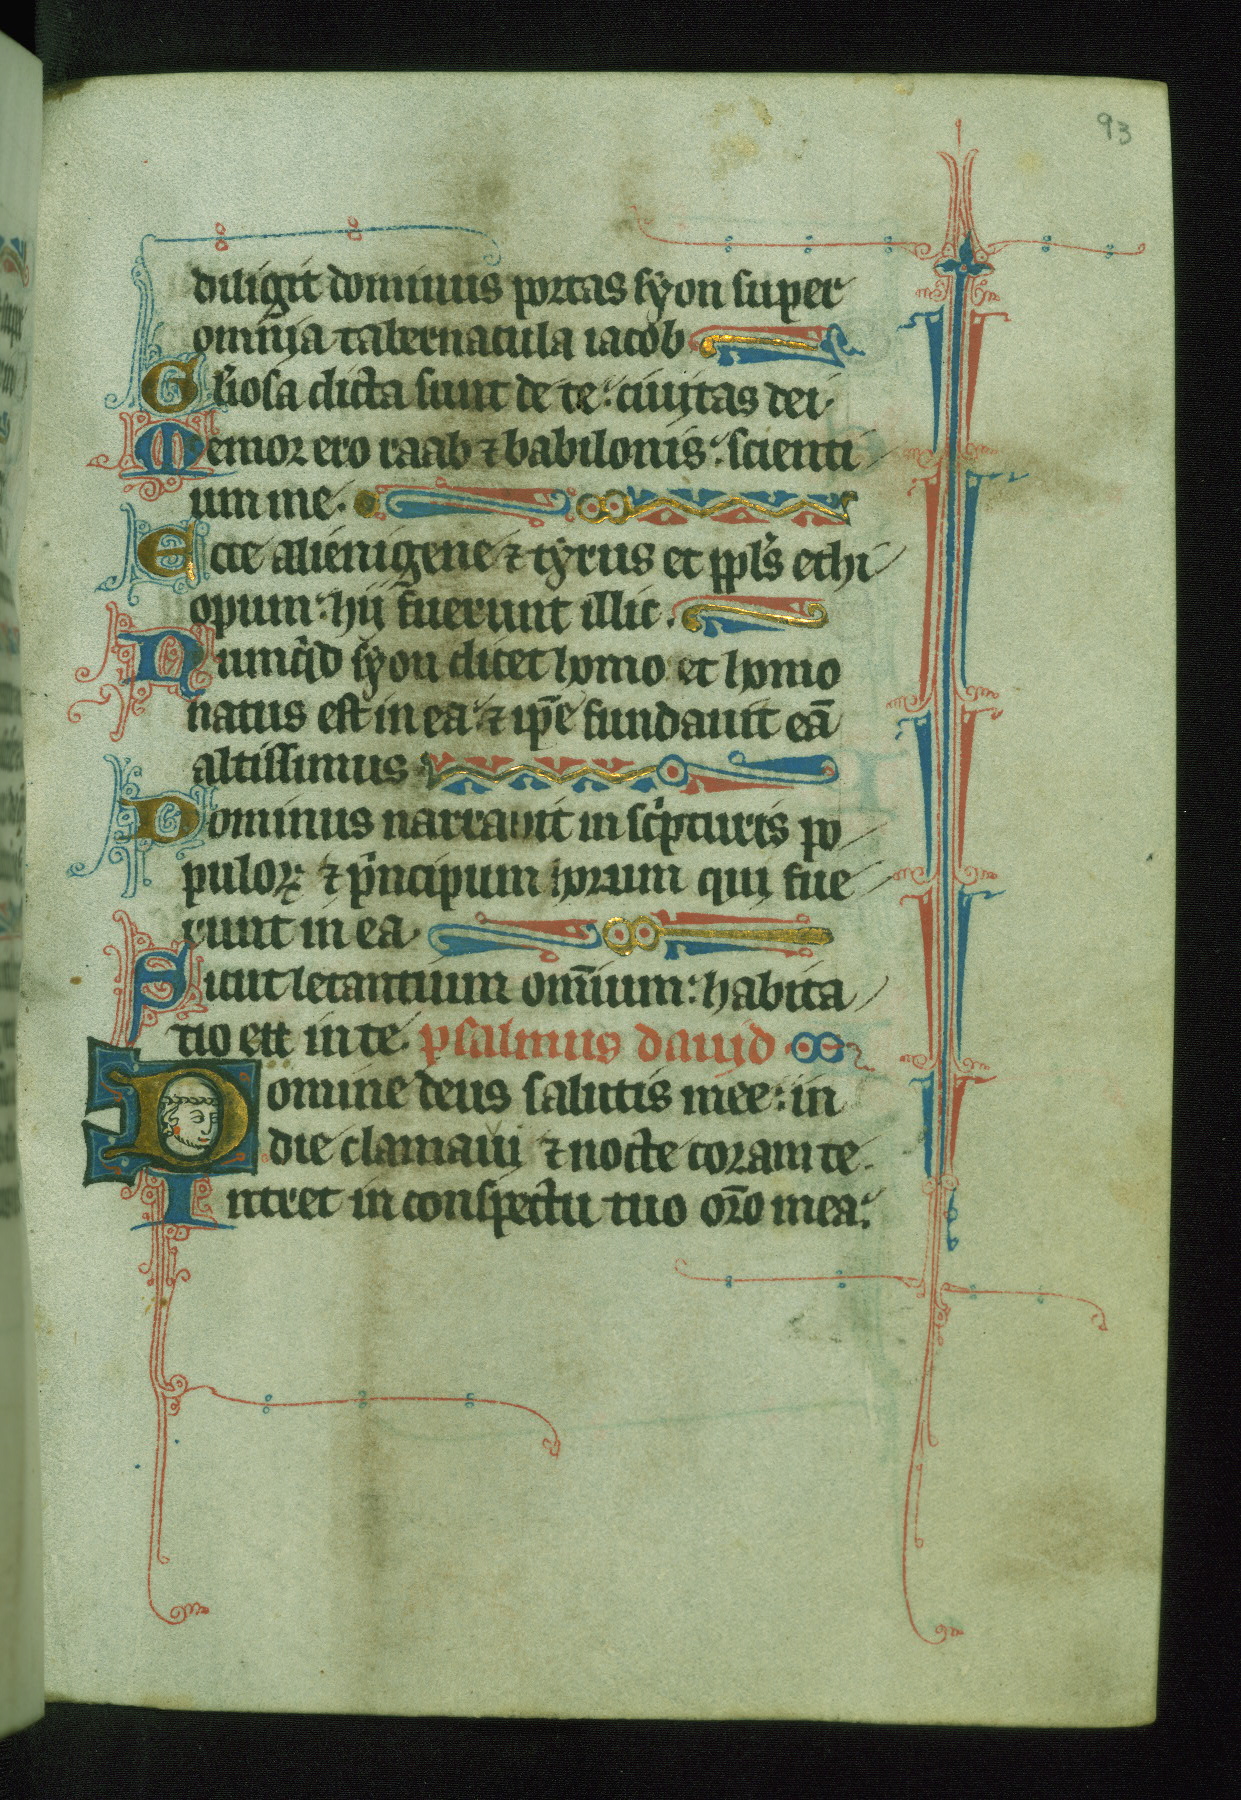 93
diligit dominus portas syon super
omnia tabernacula iacob
Gl'iosa dicta sunt de te: ciuitas dei.
Memor ero raab ⁊ babilonis: scienti
um me.
Ecce alienigene ⁊ tyrus et ppl's ethi
opum: hij fuerunt illic.
Numq'd syon dicet homo et homo
natus est in ea ⁊ ip̄e fundauit eā
altissimus
Dominus narrauit in sc'pturis po
puloꝝ ⁊ p'ncipum horum qui fue
runt in ea.
Sicut letantium om̄ium: habita
tio est in te. psalmus dauid
Domine deus salutis mee: in
die clamaui ⁊ nocte coram te.
Intret in conspectu tuo or̄o mea: